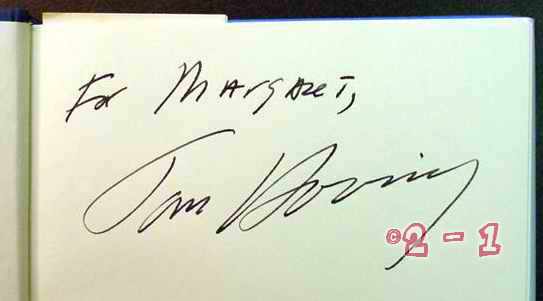 For MARgARET,
Tom Hoving
©2-1